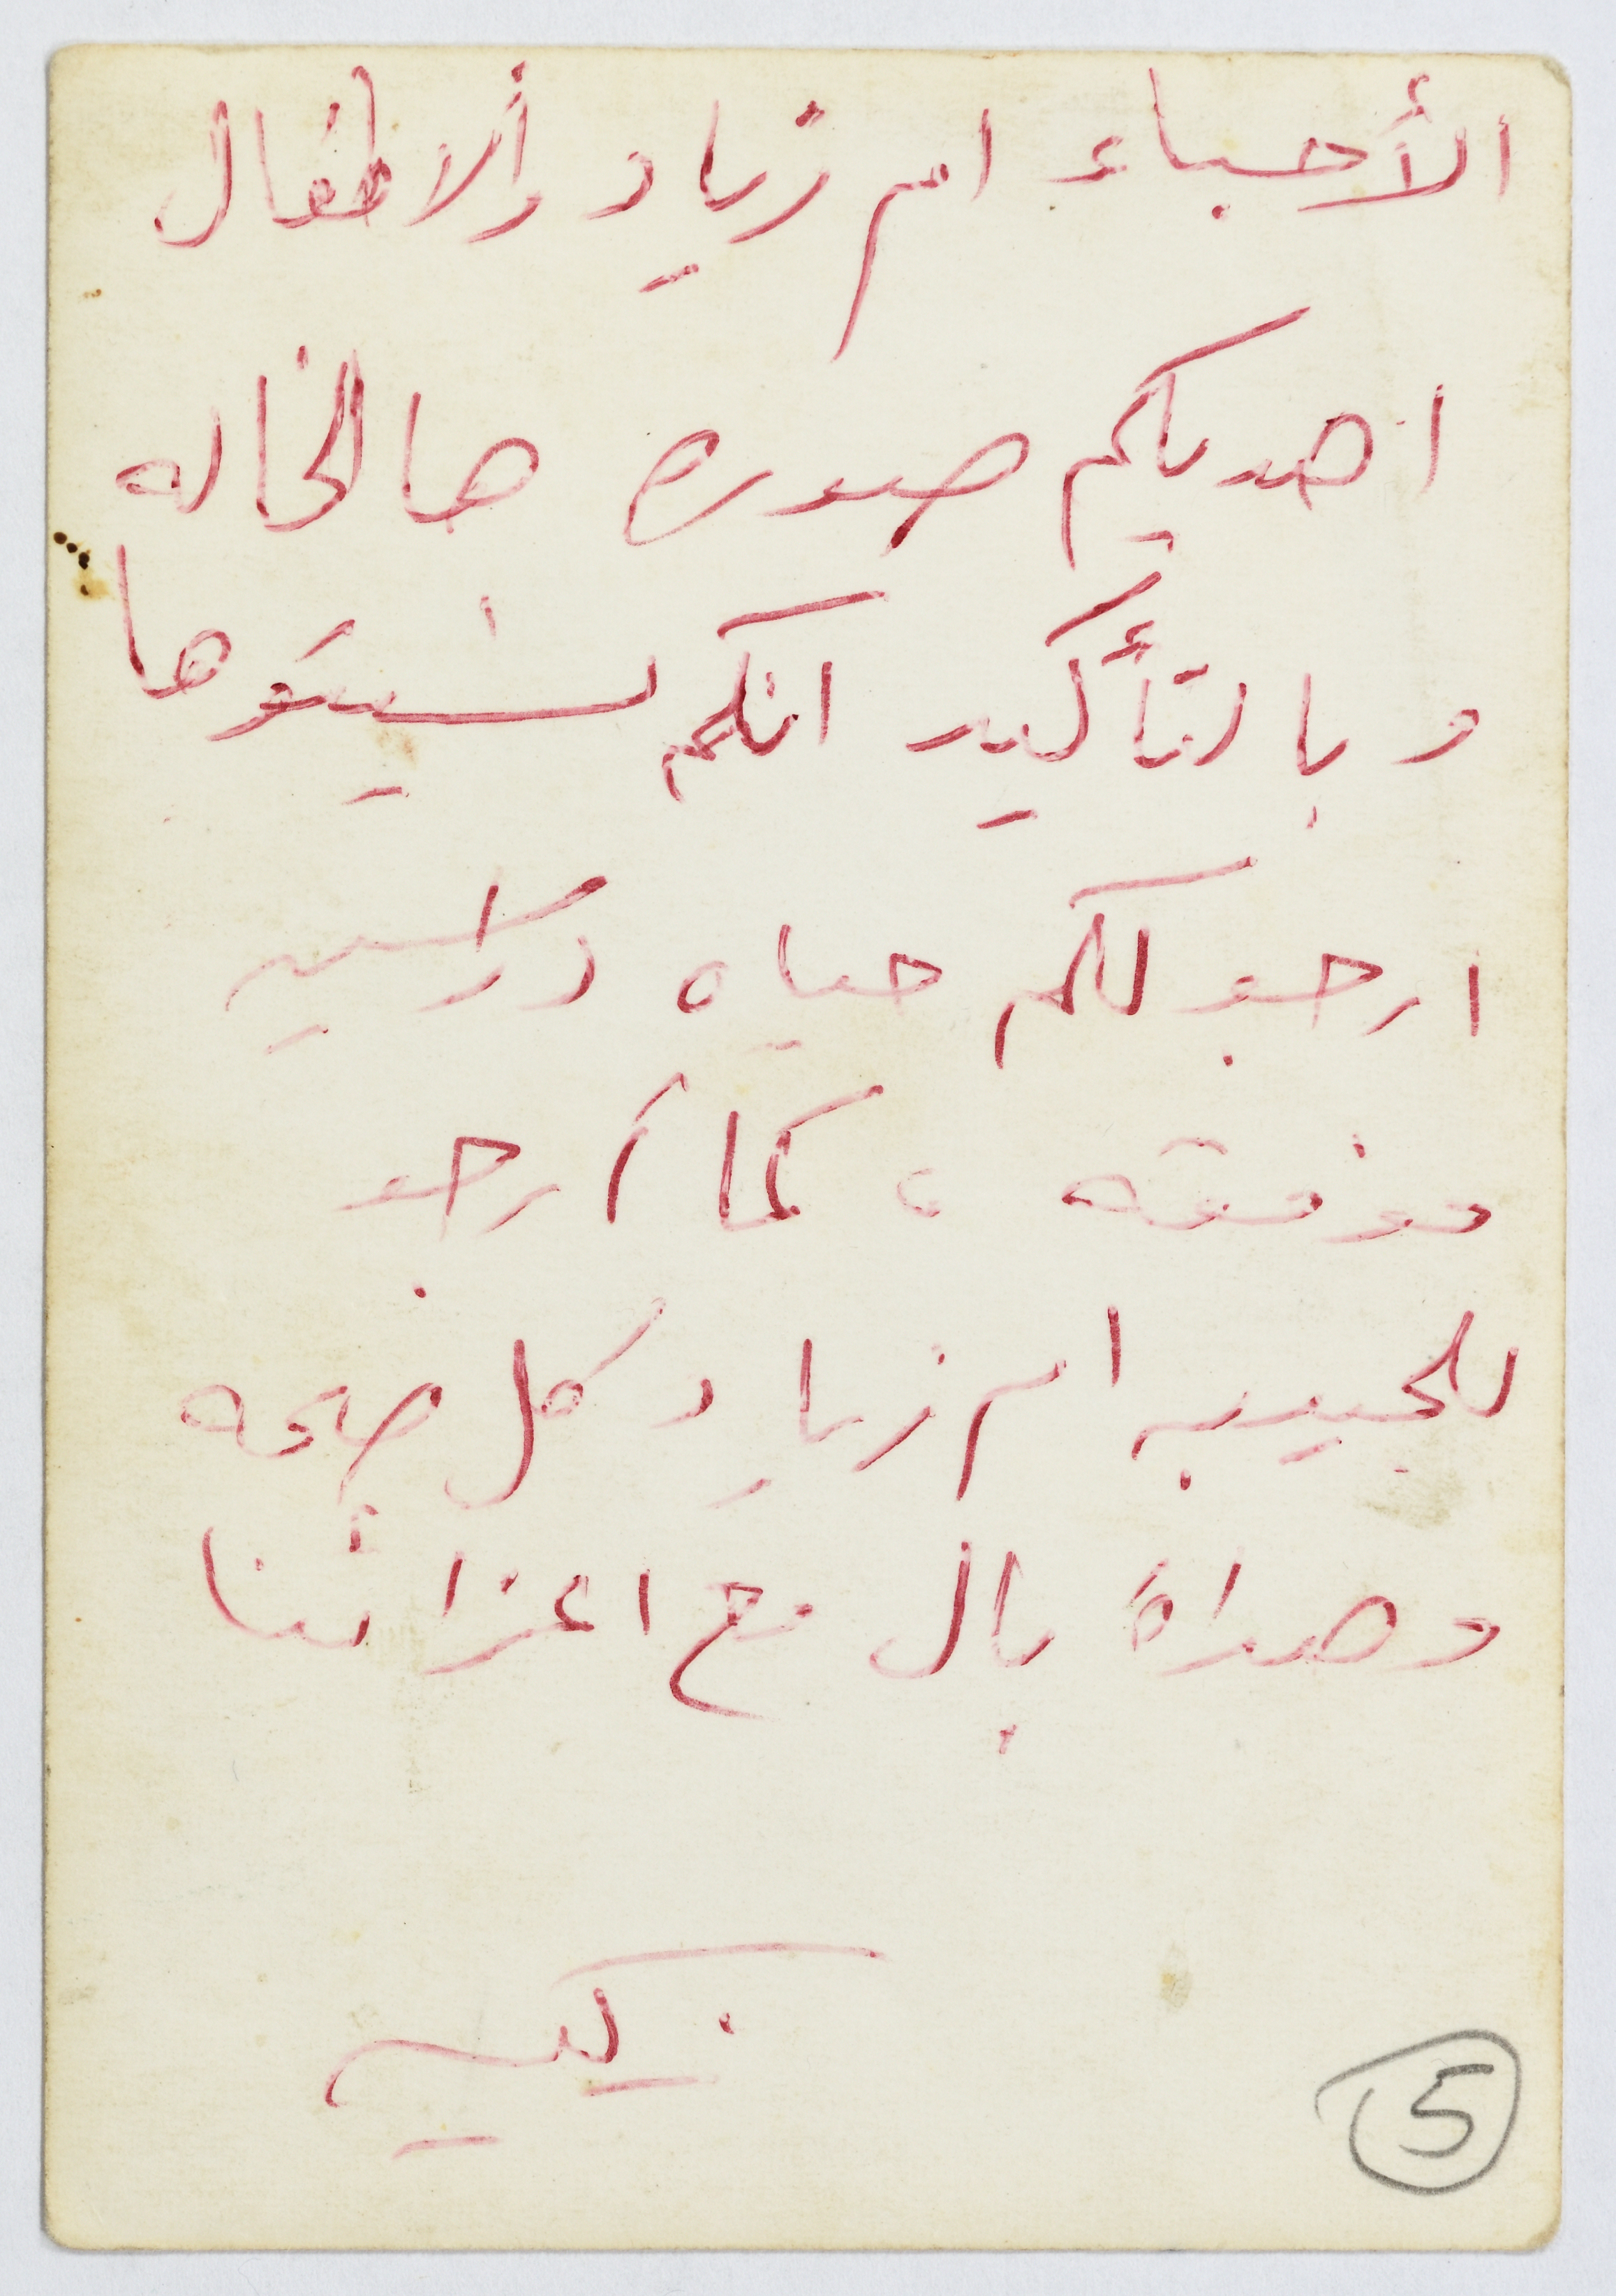 الأحباء ام زياد والاطفال
اهديكم صورة هالخاله
وبالتأكيد انكم نسيتوها
ارجو لكم حياه دراسيه
موفقه ، كما أرجو
للحبيبه ام زياد كل صحه
وهداة بال مع اعزائنا
زكيه
5